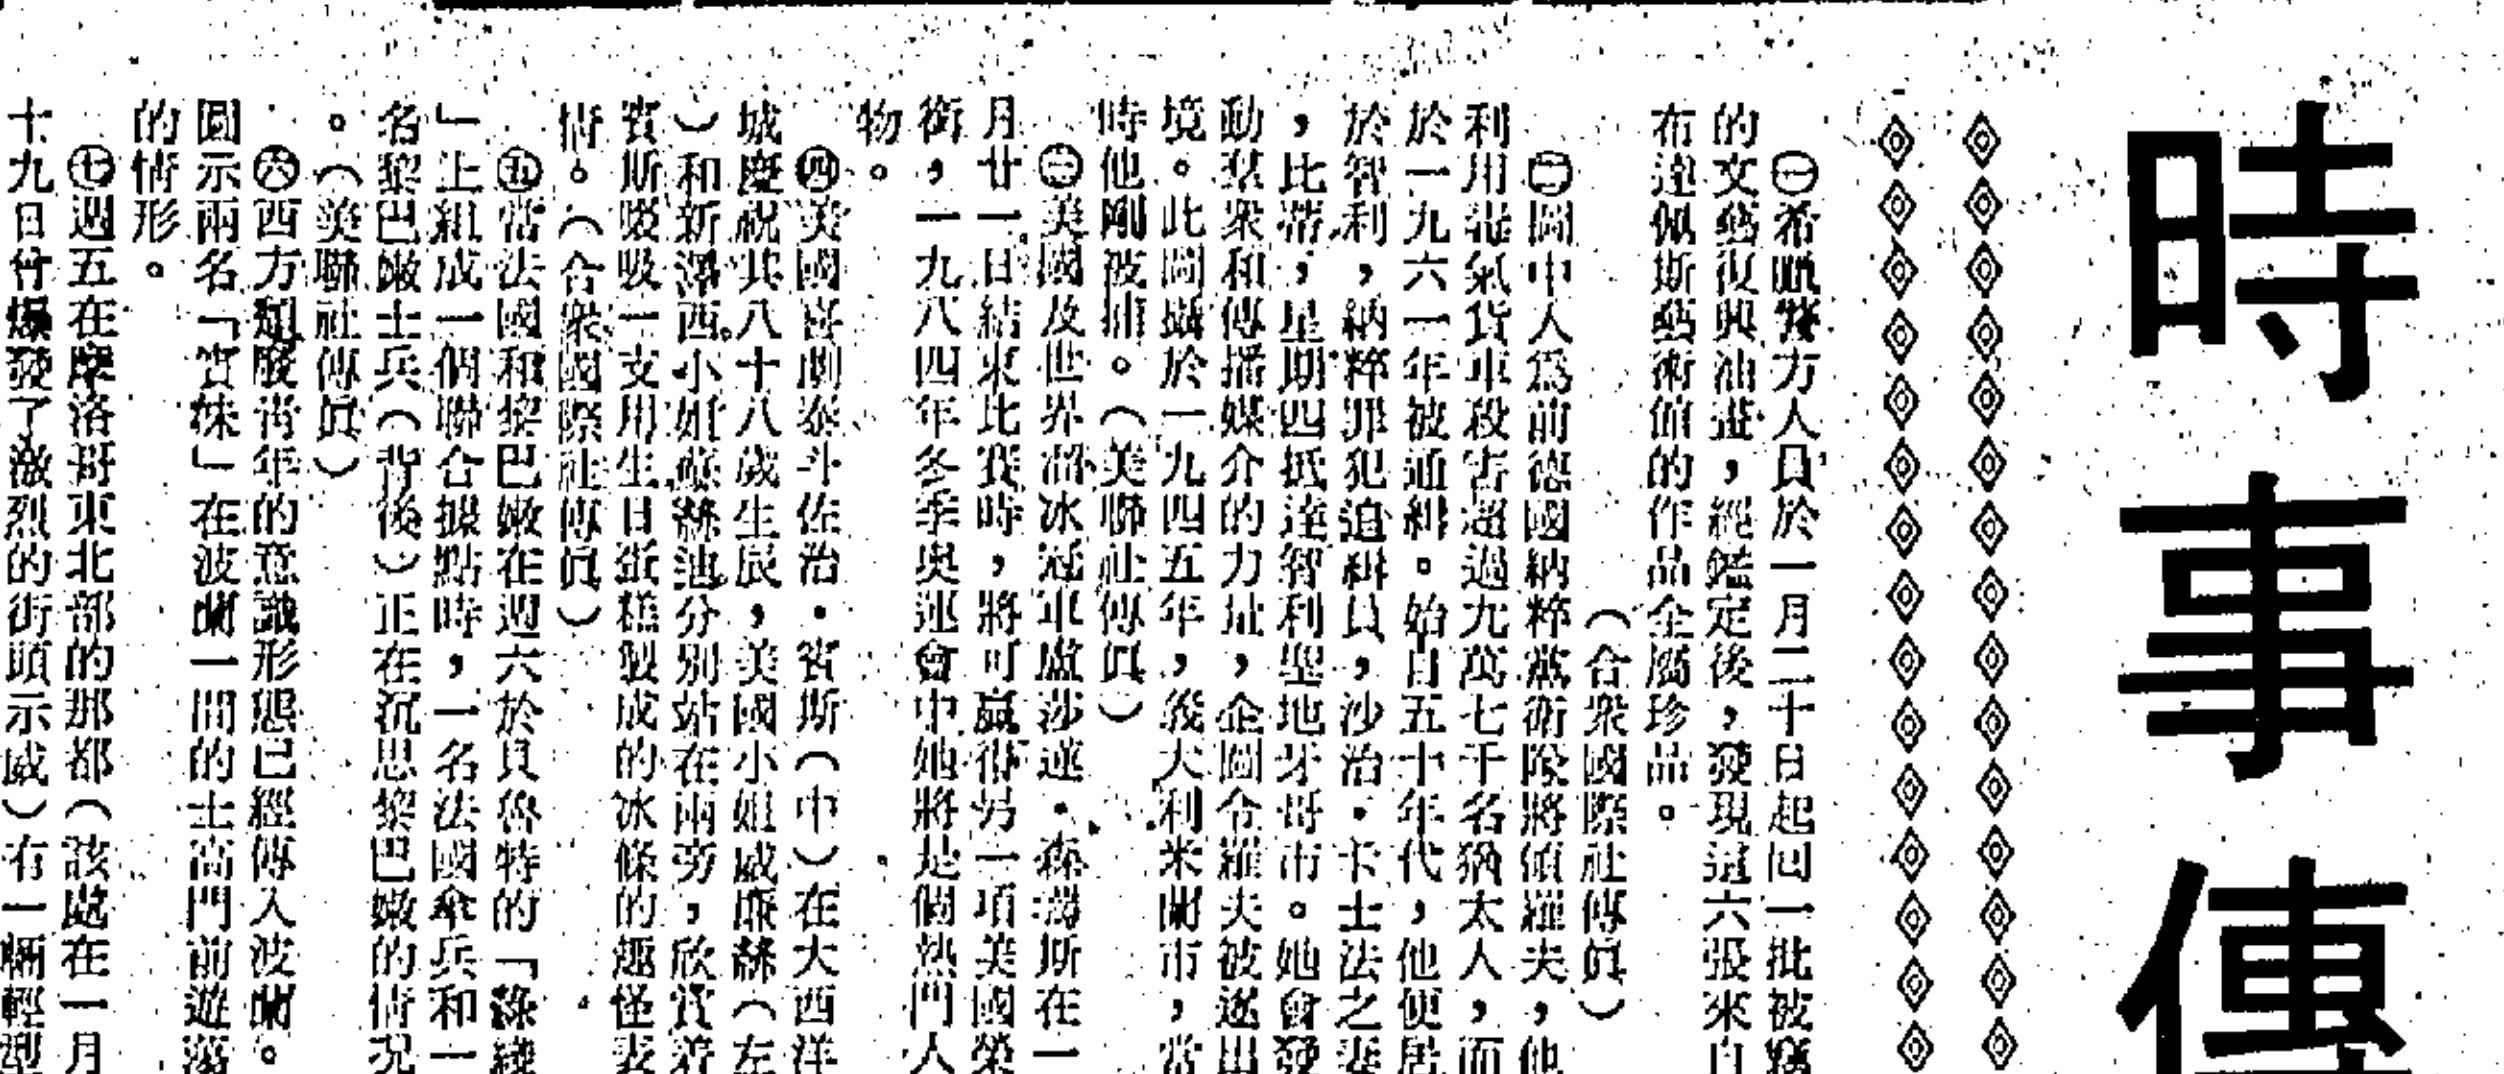 時事傳
㊀希臘警方人員於一月二十日起回一批被竊
的文藝復興油畫，經鑑定後，發現這六張來自
布達佩斯藝術館的作品全屬珍品。
（合衆國際社傳眞）
㊁圖中人爲前德國納粹黨衛隊將領羅夫，他
利用毒氣貨車殺害超過九萬七千名猶太人，而
於一九六一年被通緝。始自五十年代，他便居
於智利，納粹罪犯追緝員，沙治·卡士法之妻
，比蒂，星期四抵達智利聖地牙哥市。她會發
動羣衆和傳播媒介的力量，企圖令羅夫被逐出
境。此圖攝於一九四五年，義大利米蘭市，當
時他剛被捕。（美聯社傳眞）
㊂美國及世界溜冰冠軍盧莎蓮·森納斯在一
月廿一日結束比賽時，將可贏得另一項美國榮
銜，一九八四年冬季奧運會中她將是個熱門人
物。
㊃美國喜劇泰斗佐治·賓斯（中）在大西洋
城慶祝其八十八歲生辰，美國小姐威廉絲（左
）和新澤西小姐蘇絲池分別站在兩旁，欣賞着
賓斯吸一支用生日蛋糕製成的冰條的趣怪表
情。（合衆國際社傳眞）
㊄當法國和黎巴嫩在週六於貝魯特的「綠線
」上組成一個聯合據點時，一名法國傘兵和一
名黎巴嫩士兵（背後）正在沉思黎巴嫩的情况
。（美聯社傳眞）
㊅西方頹廢青年的意識形態已經傳入波蘭。
圖示兩名「賓妹」在波蘭一間的士高門前遊蕩
的情形。
㊆週五在摩洛哥東北部的那都（該處在一月
十九日曾爆發了激烈的街頭示威）有一輛輕型